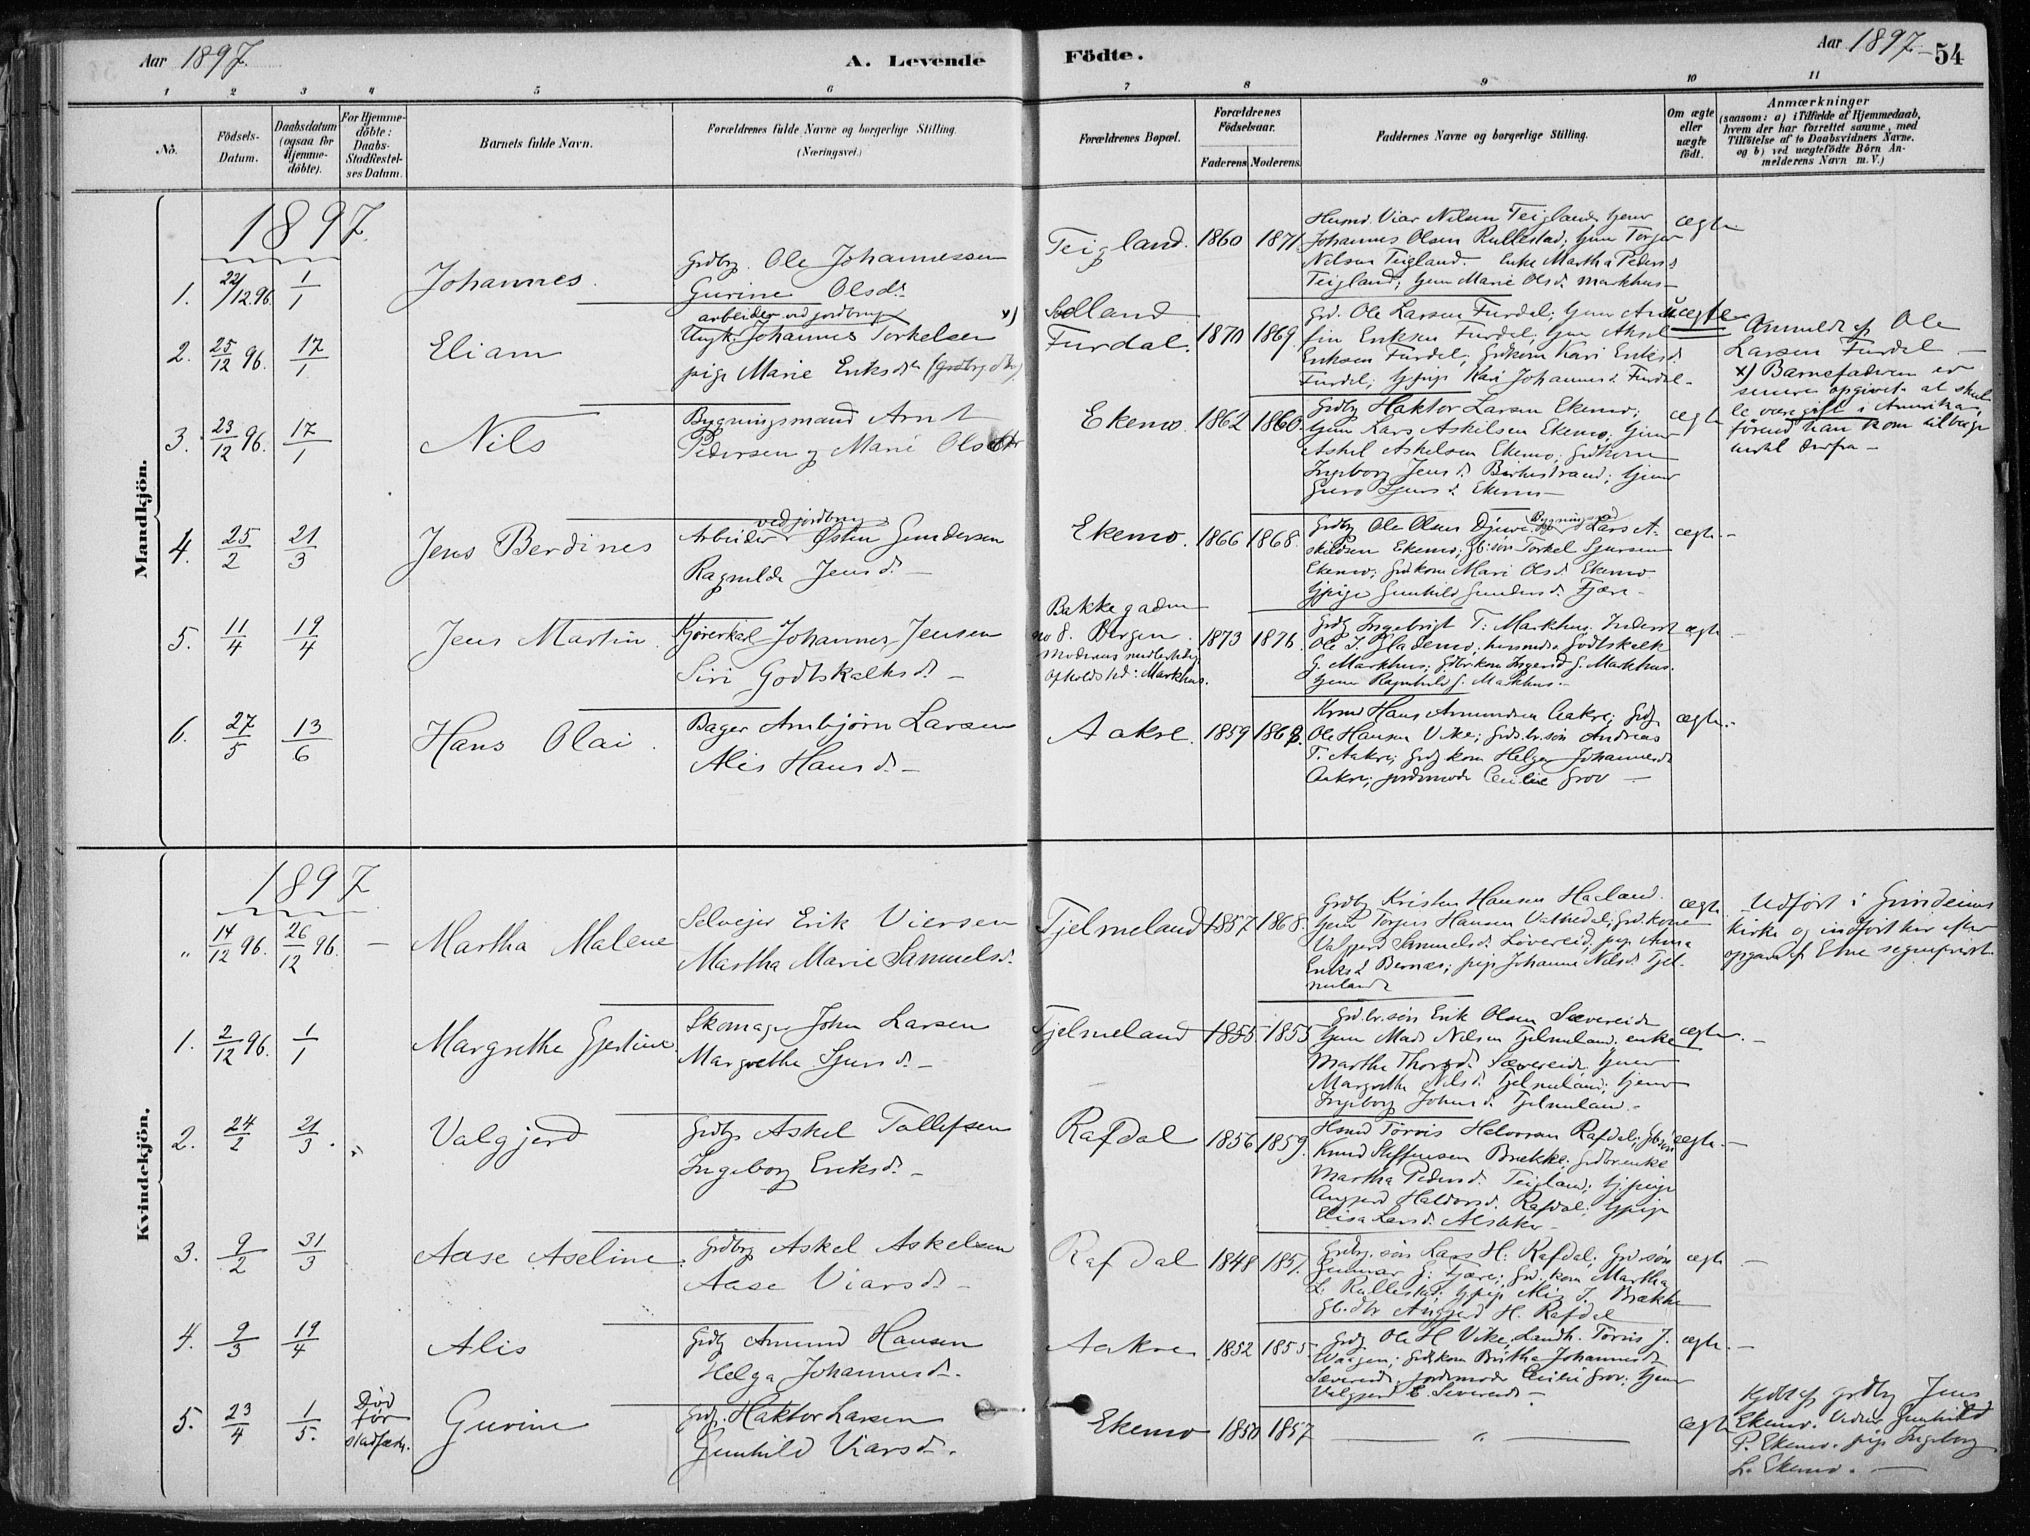 Aar 1897.
A. Levende
Födte.
Aar 1897
54
1 2 3 4 5 6 7 8 9 10 11
No.
Födsels-
Datum.
Daabsdatum
(ogsaa for
Hjemme-
döbte).
For Hjemme-
döbte:
Daabs-
Stadfæstel-
ses Datum.
Barnets fulde Navn.
Forældrenes fulde Navne og borgerlige Stilling.
(Næringsvei.)
Forældrenes Bopæl.
Forældrenes
Födselsaar.
Faderens Moderens
Faddernes Navne og borgerlige Stilling.
Om ægte
eller
uægte
födt.
Anmærkninger
(saasom: a) i Tilfælde af Hjemmedaab,
hvem der har forrettet samme, med
Tilföielse af to Daabsvidners Navne.
og b) ved uægtefödte Börn An-
melderens Navn m. V.)
Mandkjön.
1897.
1. 22/12 96. 1/1 Johannes.
Grdbr. Ole Johannessen
Gurine Olsdr.
Teigland. 1860 1871.
Husmd. Viar Nilsen Teigland
Johannes Olsen Rullestad; Torger
Nilsen Teigland. Enke Martha Pedersd.
Teigland; Marie Olsd. Markhus
ægte
2. 25/12 96. 17/1 Eliam
arbeider ved jordbrug x)
Ungk. Johannes Torkelsen
pige Marie Eriksdr.
Furdal. 1870 1869.
Ole Larsen Furdal;
fin Eriksen Furdal; Aksel
Eriksen Furdal; Grdkone Kari Eriksd.
Furdal; Kari Johannesd. Furdal
uægte
Anmeldt af Ole
Larsen Furdal
x) Barnefaderen er
senere opgivet at skul-
le være gift i Amerika,
förend han kom tilbage
derfra
3. 23/12 96. 17/1 Nils
Bygningsmand Arnt
Pedersen og Marie Olsdtr
Ekemo. 1862 1860.
Grdbr Haktor Larsen Ekemo;
Lars Askilsen Ekemo;
Askel Askelsen Ekemo; Grdkone
Ingeborg Jensd. Birkestrand;
Guro Sjursd. Ekemo
ægte
4. 25/2 21/3 Jens Berdines
ved jordbrug
Arbeider Østen Gundersen
Ragnilda Jensd.
Ekemo. 1866 1868.
Grdbr Ole Olsen Djuve; Lars A-
skildsen Ekemo; Gb.søn Torkel Sjursen
Ekemo; Grdkone Mari Olsd. Ekemo
Gunhild Gundersd. Fjære
ægte
5. 11/4 19/4 Jens Martin.
Kjørerkarl Johannes Jensen
Siri Godtskalksd.
Bakkegaden
no 8. Bergen.
Moderens midlertidige
Opholdssted: Markhus.
1873 1876.
Ingebrigt T. Markhus. Inderst
Ole I. Flademo; husmd. Godtskalk
G. Markhus; Ingerid G. Markhus.
Ragnhild G. Markhus.
ægte
6. 27/5 13/6 Hans Olai.
Bager Arnbjørn Larsen
Alis Hansd.
Aakre. 1859
Hans Amundsen Aakre;
Ole Hansen Vike; Grdbr.søn Andreas
T. Aakre; kone Helga Johannesd.
Aakre; jordmoder Cecilie Grov
ægte
Kvindekjön.
1897
" 14/12 96. 26/12 96. Martha Malene
Selveier Erik Viersen
Martha Marie Samuelsd.
Tjelmeland 1857 1868.
Grdbr Kristen Hansen Haaland.
Torger Hansen Vathedal; Grd.kone
Valgjerd Samuelsd. Løvereid; pige Anna
Eriksd. Bernæs; pige Johanne Nilsd. Tjel-
meland
ægte
Udført i Grindeims
kirke og indført her efter
opgave af Etne sogneprest.
1. 2/12 96. 1/1 Margrethe Gjertine
Skomager John Larsen
Margrethe Sjursd.
Tjelmeland 1855 1855
Grd.br.søn Erik Olsen Sævereide
Mads Nilsen Tjelmeland. enke
Martha Thorsd. Sævereide;
Margretha Nilsd. Tjelmeland;
Ingeborg Johnsd. Tjelmeland.
ægte.
2. 24/1 21/3 Valgjerd
Grdbr Askel Tollefsen
Ingeborg Eriksd.
Rafdal 1856 1859.
Torvis Halvorsen Rafdal;
Knud Steffensen Brække; Grdbr.enke
Martha Pedersd. Teigland;
Haldorsd. Rafdal;
Elisa Larsd. Alsaker
ægte
3. 9/2 31/3 Aase Aseline.
Grdbrg Askel Askelsen
Aase Viarsd.
Rafdal 1848 1857.
Grdbr.søn Lars H. Rafdal; Grd.søn
Gunnar G. Fjære; Grd.kone Martha
L. Rullestad; pige Alis J. Brække
H. Rafdal
ægte
4. 9/3 19/4 Alis
Grdbr Amund Hansen
Helga Johannesd.
Aakre 1852 1855.
Ole H. Vike, Landh. Torvis J.
Waagen; Grdkone Britha Johannesd.
Sævereide; jordmoder Cecilie Grov;
Valgjerd E. Severeide
ægte.
5. 23/4 1/5. Død
før
stadfæst.
Gurine
Grdbr. Haktor Larsen
Gunhild Viarsd.
Ekemo 1850 1857 "
ægte
Hjdbt af grdbr Jens
Ekemo. Vidner Gunhild
P. Ekemo. pige Ingeborg
L. Ekemo.